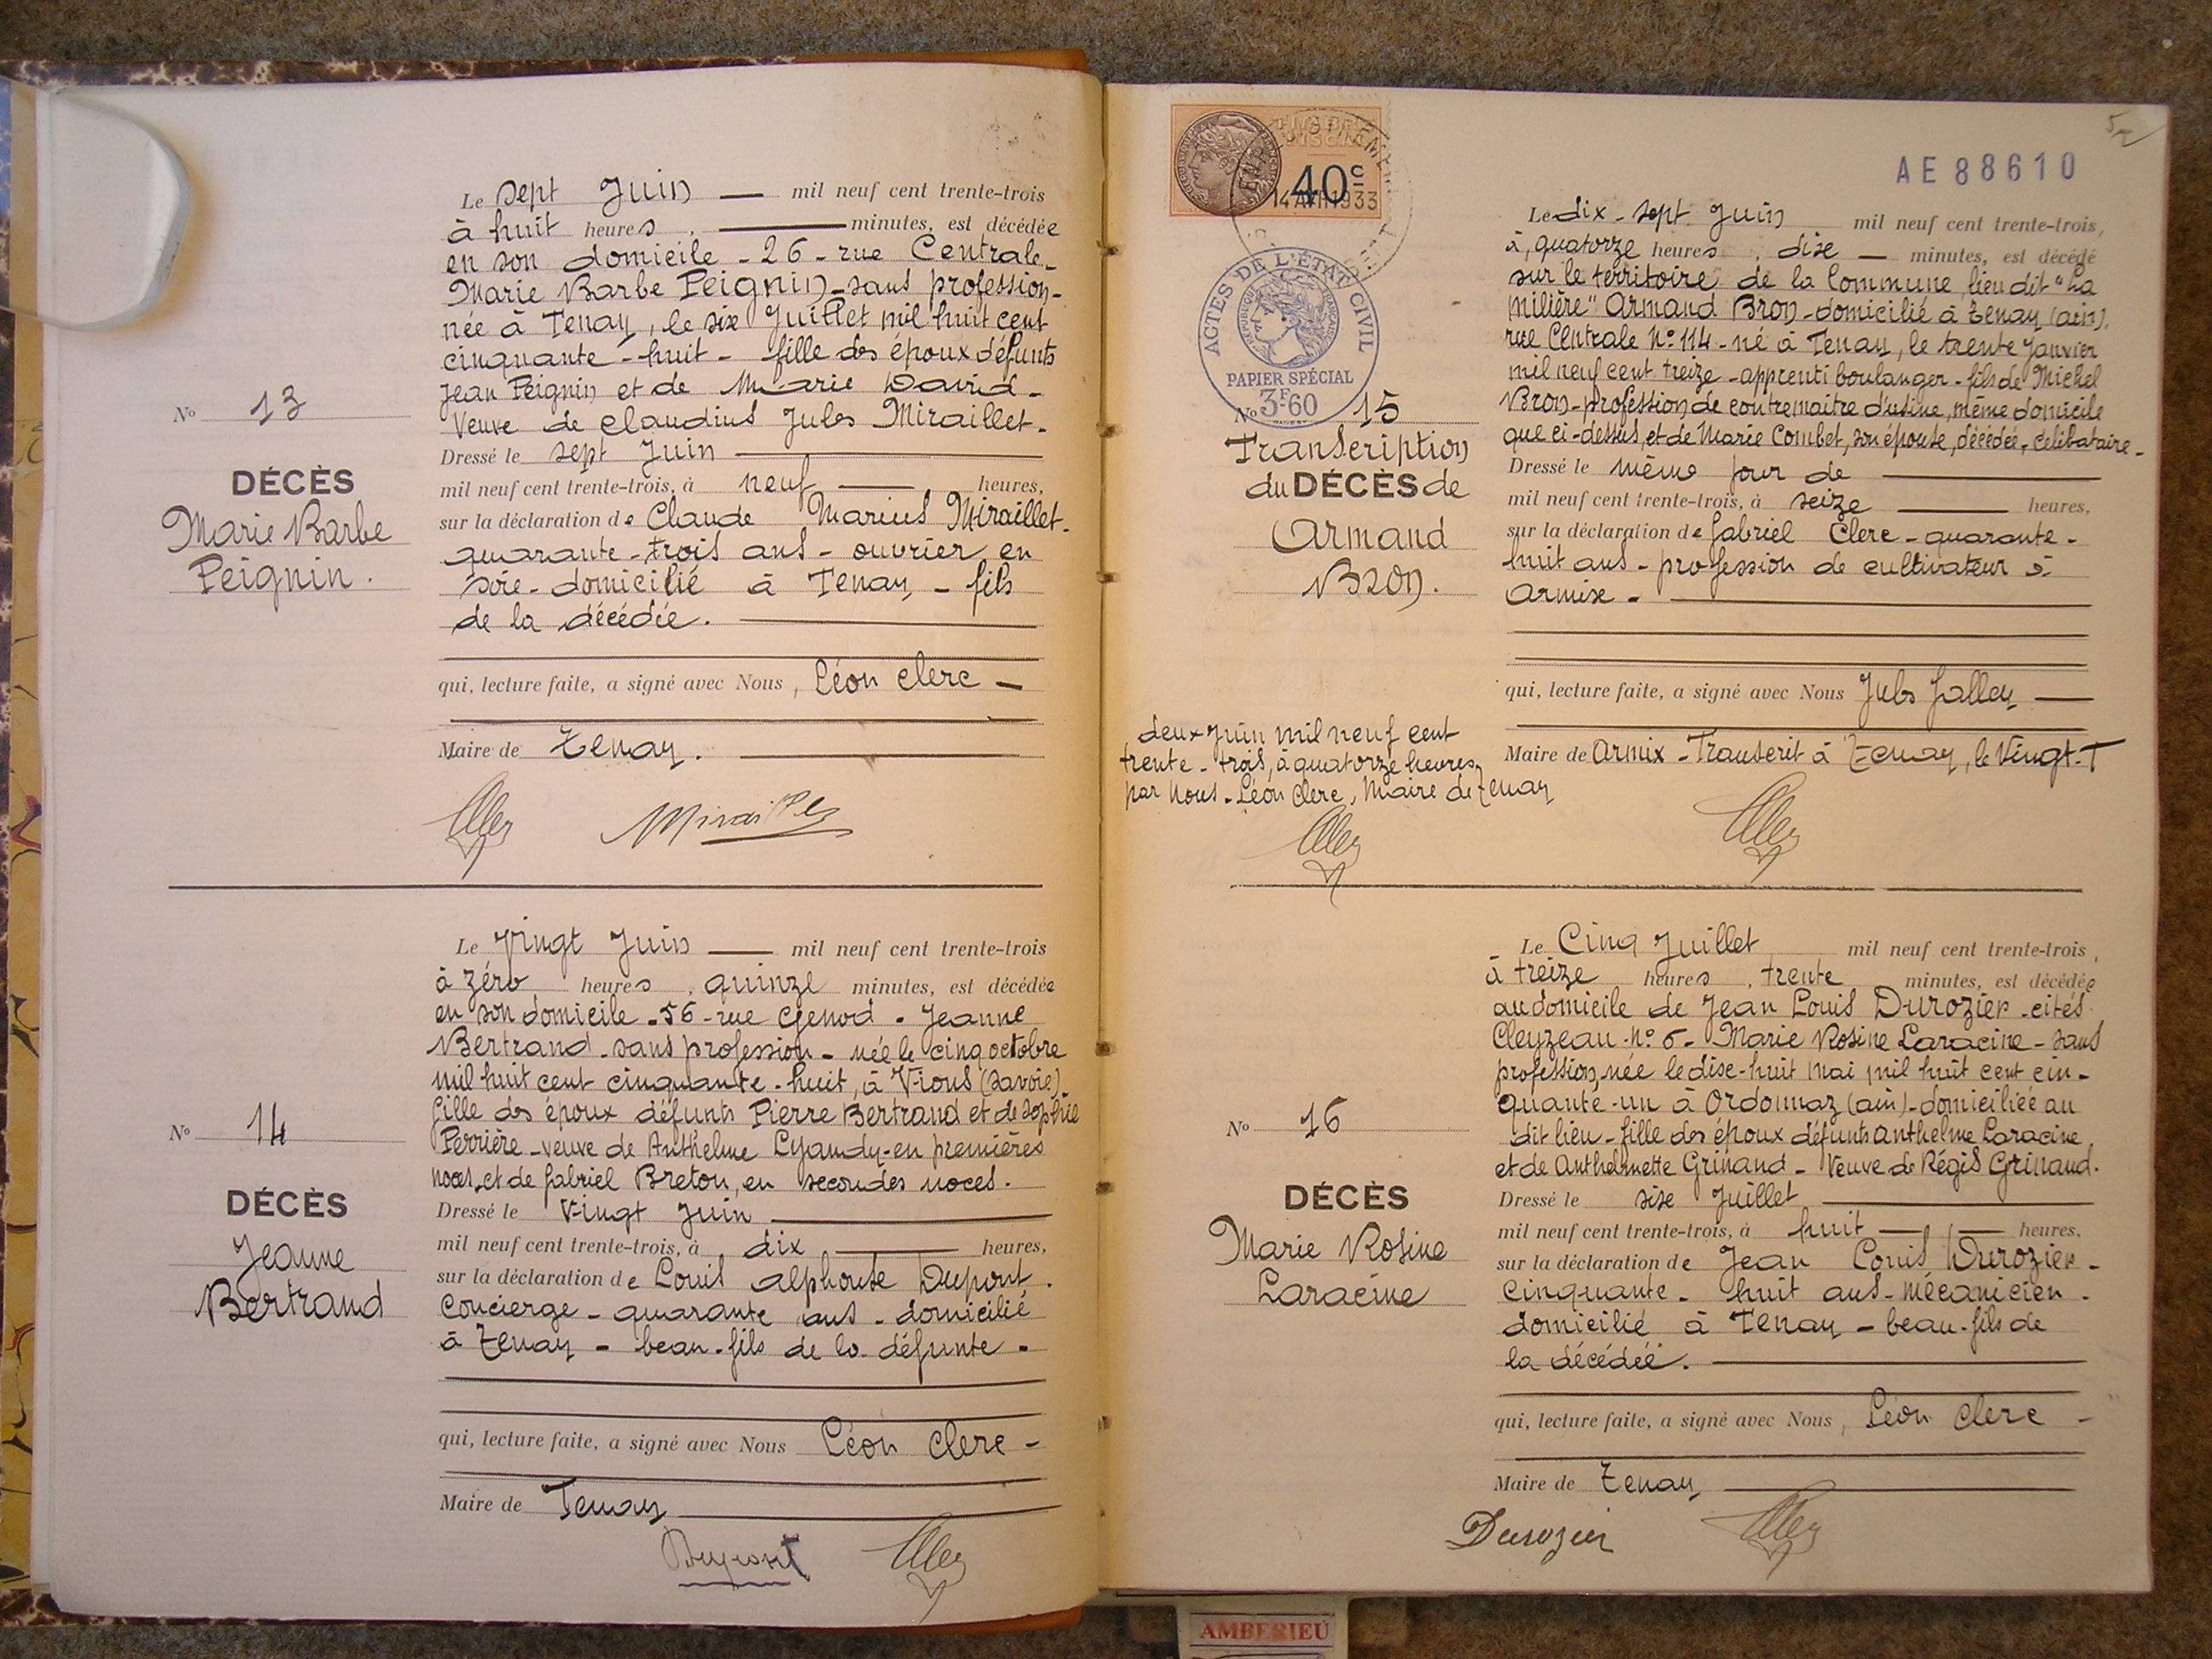 Le sept Juin — mil neuf cent trente-trois
à huit heures, — minutes, est décédée
en son domicile - 26 - rue Centrale -
Marie Barbe Peignin - sans profession -
née à Tenay, le six Juillet mil huit cent
cinquante - huit - fille des époux défunts
Jean Peignin et de Marie David -
Veuve de Claudius Jules Miraillet.
No 13
DÉCÈS
Marie Barbe
Peignin.
Dressé le sept Juin —
mil neuf cent trente-trois, à neuf — heures,
sur la déclaration de Claude Marius Miraillet -
quarante - trois ans - ouvrier en
soie - domicilié à Tenay, - fils
de la décédée. —
qui, lecture faite, a signé avec Nous, Léon Clerc —
Maire de Tenay. —
Le Vingt Juin — mil neuf cent trente-trois
à zéro heures, quinze minutes, est décédée
en son domicile - 56 - rue Genod - Jeanne
Bertrand - sans profession - née le cinq octobre
mil huit cent cinquante - huit, à Vions (Savoie) -
fille des époux défunts Pierre Bertrand et de Sophie
Perrière - veuve de Anthelme Lyaudy - en premières
noces, et de Gabriel Breton, en secondes noces.
No 14
DÉCÈS
Jeanne
Bertrand
Dressé le Vingt Juin —
mil neuf cent trente-trois, à dix — heures,
sur la déclaration de Louis Alphonse Dupont.
Concierge - quarante ans - domicilié
à Tenay - beau-fils de la défunte -
qui, lecture faite, a signé avec Nous Léon Clerc -
Maire de Tenay —
Dupont
40c
14 1933
AE 88610
ACTES DE L'ÉTAT CIVIL
PAPIER SPÉCIAL
3F60
Le dix - sept Juin mil neuf cent trente-trois,
à, quatorze heures, dixe — minutes, est décédé
sur le territoire de la Commune, lieu dit "La
milière" Armand Bron - domicilié à Tenay (ain),
rue Centrale No 114 - né à Tenay, le trente Janvier
mil neuf cent treize - apprenti boulanger - fils de Michel
Bron - profession de contremaitre d'usine, même domicile
que ci-dessus, et de Marie Combet, son épouse, décédée, célibataire -
No 15
Transcription
du DÉCÈS de
Armand
Bron.
Dressé le même jour de —
mil neuf cent trente-trois, à seize — heures,
sur la déclaration de Gabriel Clerc - quarante -
huit ans - profession de cultivateur à
Armix - —
qui, lecture faite, a signé avec Nous Jules Galley —
Maire de Armix - Transcrit à Tenay, le Vingt-
deux Juin mil neuf cent
trente - trois, à quatorze heures,
par Nous - Léon Clerc, Maire de Tenay
Le Cinq Juillet mil neuf cent trente-trois,
à treize heures, trente minutes, est décédée
au domicile de Jean Louis Durozier - cités
Cleyzeau - No 6 - Marie Rosine Laracine - sans
profession, née le dixe-huit mai mil huit cent cin -
quante - un à Ordonnaz (ain) - domiciliée au
dit lieu - fille des époux défunts Anthelme Laracine,
et de Anthelmette Grinand - Veuve de Régis Grinand.
No 16
DÉCÈS
Marie Rosine
Laracine
Dressé le sixe Juillet —
mil neuf cent trente-trois, à huit — heures,
sur la déclaration de Jean Louis Durozier -
cinquante - huit ans - mécanicien -
domicilié à Tenay - beau-fils de
la décédée. —
qui, lecture faite, a signé avec Nous, Léon Clerc -
Maire de Tenay, —
Durozier
AMBERIEU